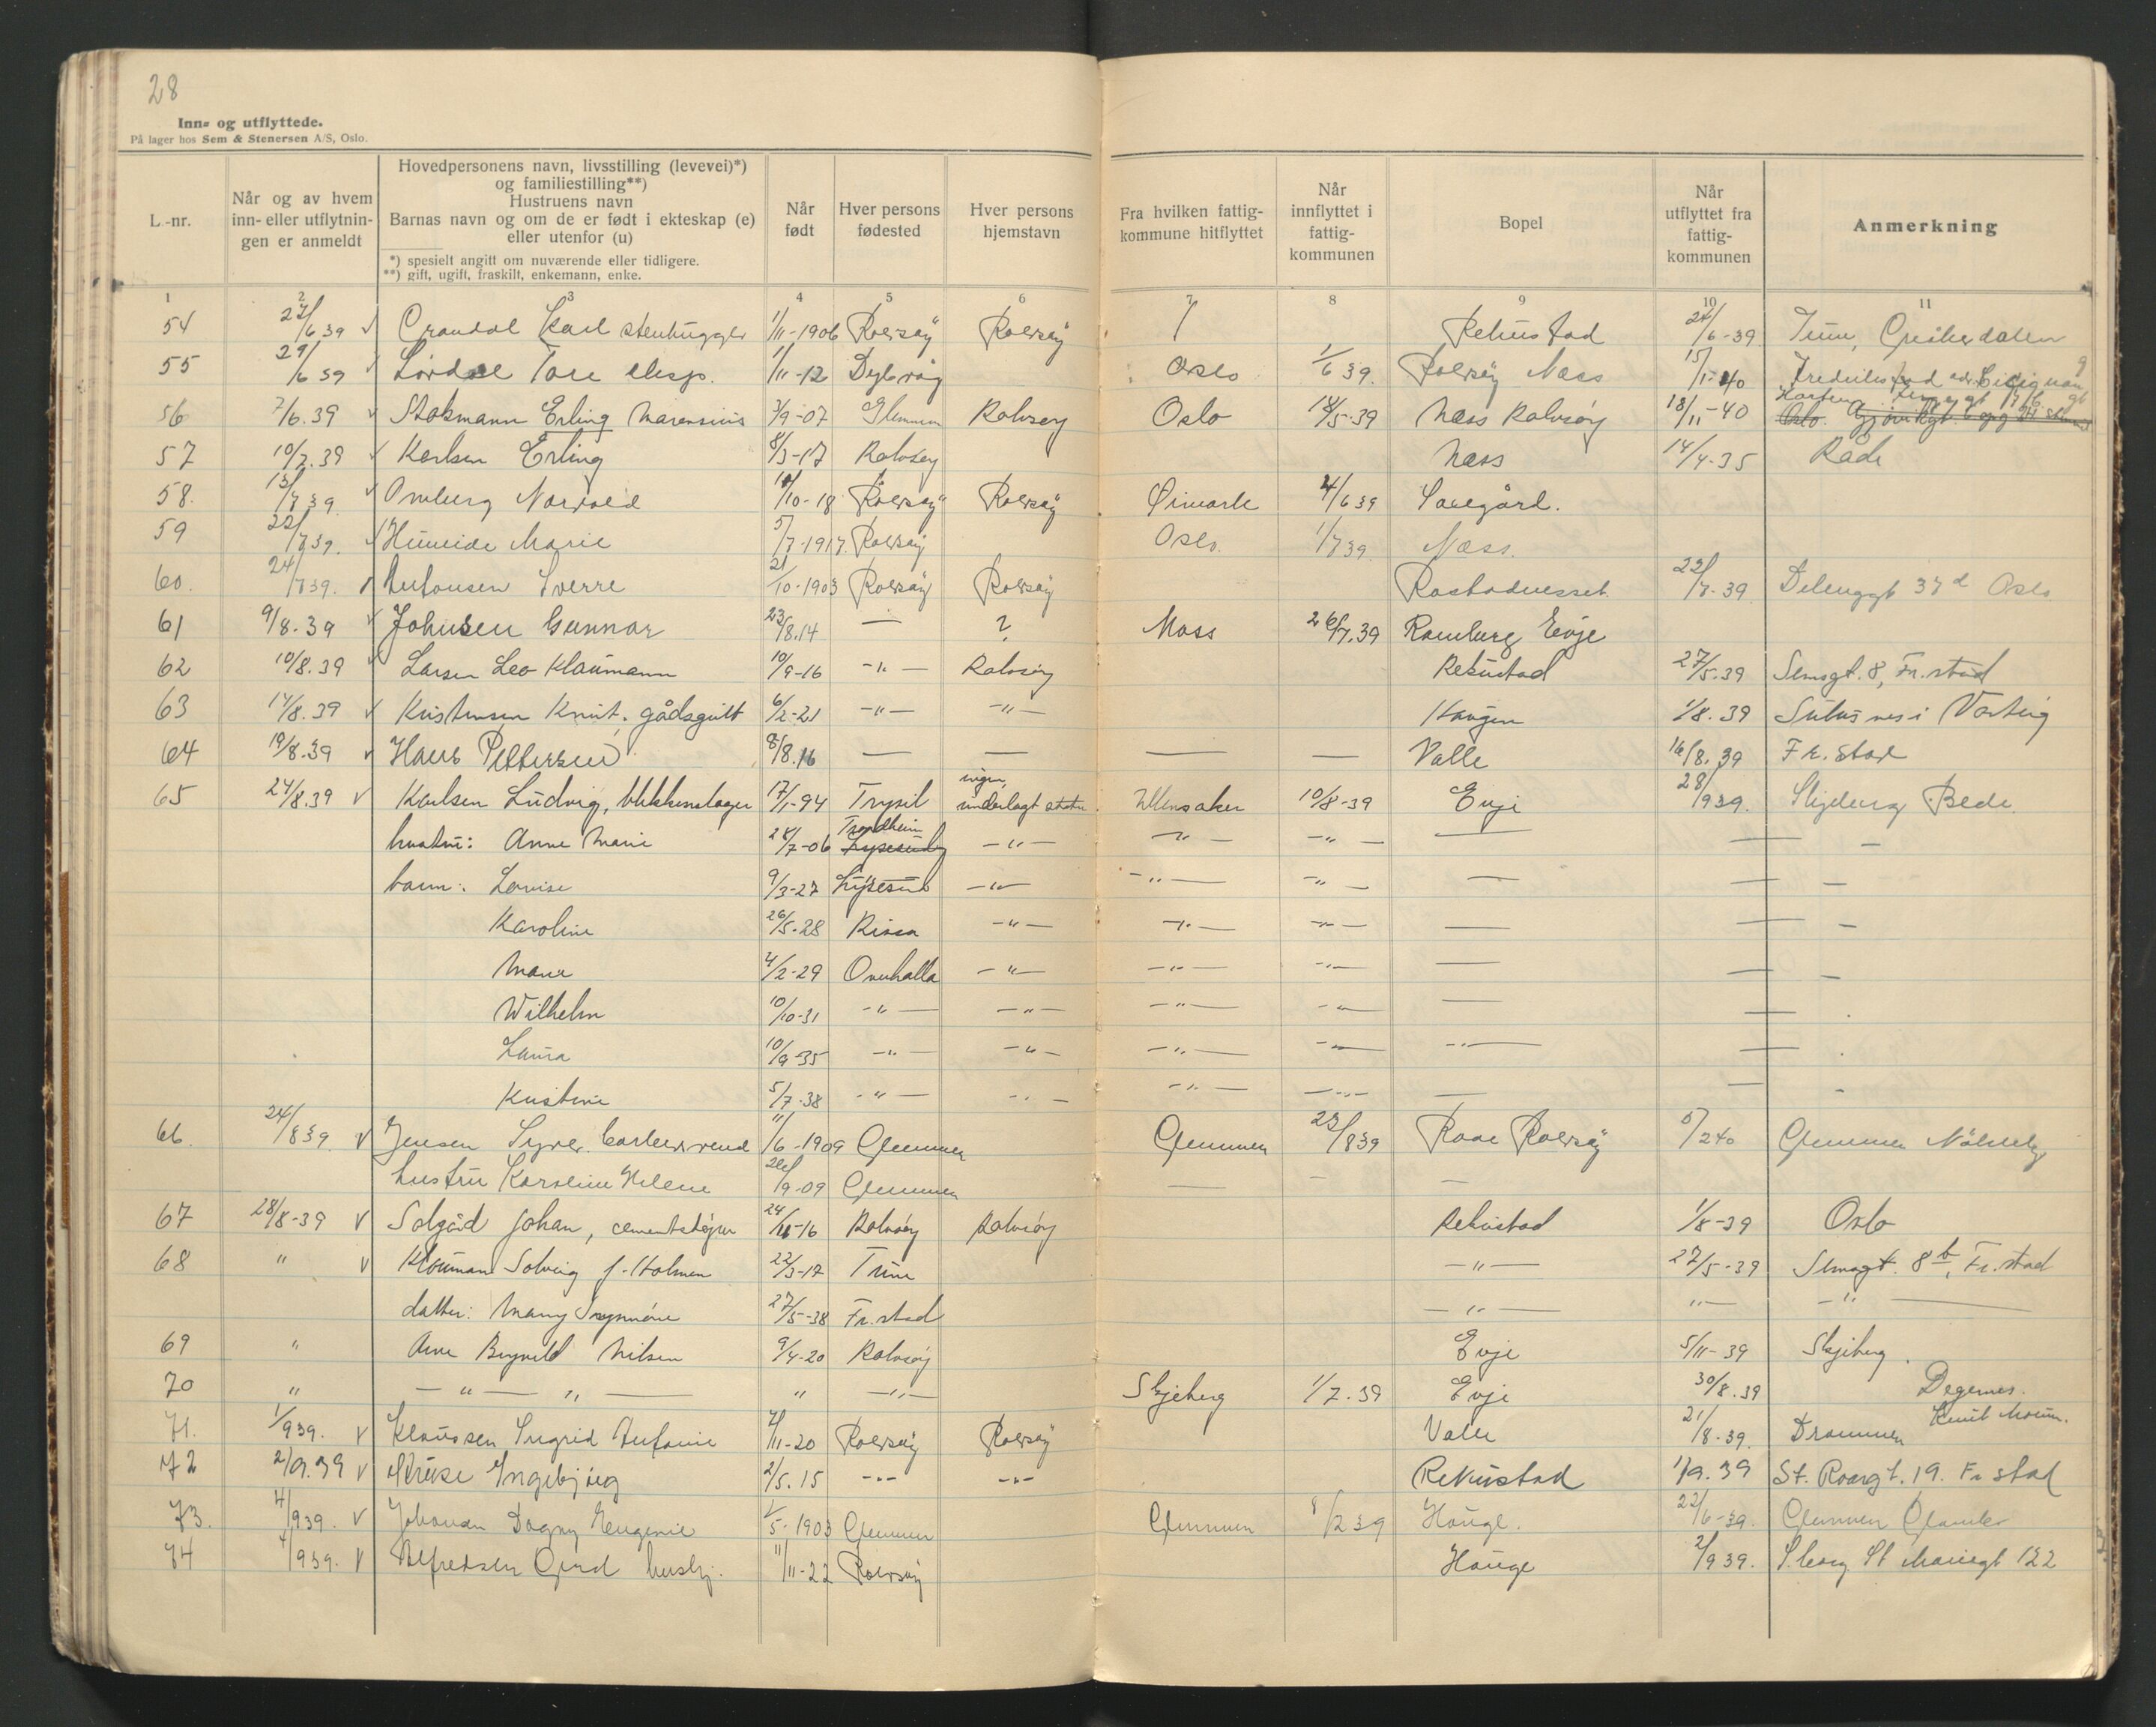 28
Inn- og utflyttede.
På lager hos Sem & Stenersen A/S, Oslo.
L.-nr. Når og av hvem inn- eller utflytningen er anmeldt Hovedpersonens navn, livsstilling (levevei)*) og familiestilling**) Hustruens navn Barnas navn og om de er født i ekteskap (e) eller utenfor (u) *) spesielt angitt om nuværende eller tidligere. **) gift, ugift, fraskilt, enkemann, enke. Når født Hver persons fødested Hver persons hjemstavn Fra hvilken fattigkommune hitflyttet Når innflyttet i fattigkommunen Bopel Når utflyttet fra fattigkommunen Anmerkning
1 2 3 4 5 6 7 8 9 10 11
54 27/6 39 Karl stenhugger 1/11-1906 Rolvsøy Rolvsøy Rekustad 24/6-39 Tune, Greåkerdalen
55 29/6 39 Tore 1/11-12 Oslo 1/6 39. Rolvsøy Næss 15/1-40 Fredrikstad
56 7/6.39 Stokmann Erling Marensius 3/9-07 Glemmen Rolvsøy Oslo 14/5-39 Næss Rolvsøy 18/11-40 Oslo.
57 10/7.39 Karlsen Erling 8/3-17 Rolvsøy Næss 14/4-35 Råde
58. 13/7 39 Omberg Norvald 10/10-18 Rolvsøy Rolvsøy Øimark 4/6 39
59 22/7 39. Marie 5/7-1917. Rolvsøy Oslo. 1/7 39 Næss.
60. 24/7 39. Antonsen Sverre 21/10-1903 Rolvsøy Rolvsøy Rostadnesset 22/7-39 Delenggt 37d Oslo
61 9/8-39 Johnsen Gunnar 23/8.14 — ? Moss 26/7.39 Ramberg Evje
62 10/8.39 Larsen Leo Klaumann 10/9-16 -"- Rolvsøy Rekustad 27/5-39 Lensgt. 8, Fr.stad
63 14/8.39 Kristensen Knut, gådsgutt 6/2-21 -"- -"- Haugen 1/8.39 i Varteig
64 19/8.39 Hans Pettersen 8/8.16 — — — — Valle 16/8.39 Fr.stad
65 24/8.39 Karlsen Ludvig, blikkenslager 17/1-94 Trysil ingen, underlagt Ullensaker 10/8-39 Evje 28/9 39. Skjeberg
hustru: Anne Marie 28/7-06 Trondheim -"- -"- -"- — — —
barn: Lovise 9/3-27 -"- -"- -"- — — —
Karoline 26/5-28 Rissa -"- -"- -"- — — —
Marie 4/2-29 Overhalla -"- -"- -"- — — —
Wilhelm 10/10-31 -"- -"- -"- -"- — —
Laura 10/9-35 -"- -"- -"- -"- -"- —
Kristine 5/7-38 -"- -"- -"- -"- — —
66. 24/8 39. Jensen 11/6-1909 Glemmen Glemmen 23/8 39 Rolvsøy 5/2 40 Glemmen
hustru Karoline Helene 9-09 Glemmen — — —
67 28/8-39 Solgård Johan, cementstøper 24/11-16 Rolvsøy Rolvsøy Rekustad 1/8-39 Oslo
68 " Klouman Solveig f. Holmen 22/3-17 Tune -"- 27/5-39 Lensgt. 8b, Fr.stad
datter: Mary Synnøve 27/5-38 Fr.stad -"- "- -"-
69 " Arne Nilsen 9/4-20 Rolvsøy Evje 5/11-39 Skjeberg.
70 " -"- " " -"- Skjeberg 1/7.39 Evje 30/8.39 Degernes.
71. 1/9 39. Klaussen Ingrid Antonie 7/11-20 Rolvsøy Rolvsøy Valle 21/8-39. Drammen Knut
72 2/9.39 Ingebjørg 2/5.15 -"- -"- Rekustad 1/9.39 St. 19. Fr stad
73. 4/9 39. Johansen Dagny Eugenie 1/5-1903 Glemmen Glemmen 8/2 39 Hauge. 22/6-39. Glemmen
74 4/9 39. Alfredsen Gerd hushj. 11/11-22 Rolvsøy Hauge 2/9 39. S.borg St Mariegt 122